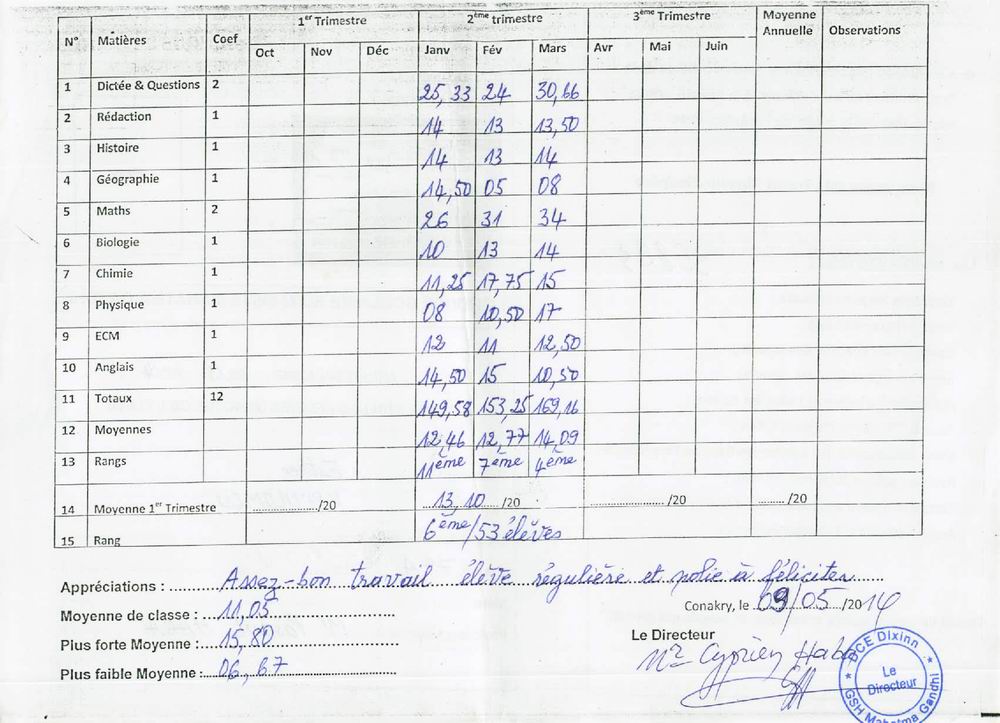 1er Trimestre 2ème trimestre 3ème Trimestre Moyenne Annuelle Observations
N° Matières Coef Oct Nov Déc Janv Fév Mars Avr Mai Juin
1 Dictée & Questions 2 25,33 24 30,66
2 Rédaction 1 14 13 13,50
3 Histoire 1 14 13 14
4 Géographie 1 14,50 05 08
5 Maths 2 26 31 34
6 Biologie 1 10 13 14
7 Chimie 1 11,25 17,75 15
8 Physique 1 08 10,50 17
9 ECM 1 12 11 12,50
10 Anglais 1 14,50 15 10,50
11 Totaux 12 149,58 153,25 169,16
12 Moyennes 12,46 12,77 14,09
13 Rangs 11ème 7ème 4ème
14 Moyenne 1er Trimestre ............../20 13,10 /20 ............../20 ....../20
15 Rang 6ème/53 élèves
Appréciations : Assez-bon travail élève régulière et polie à féliciter
Moyenne de classe : 11,05
Conakry, le 09/05/2014
Plus forte Moyenne : 15,80
Le Directeur
Plus faible Moyenne : 06,67
Mr Cyprien Haba
DCE Dixinn
Le Directeur
GSH Mahatma Gandhi